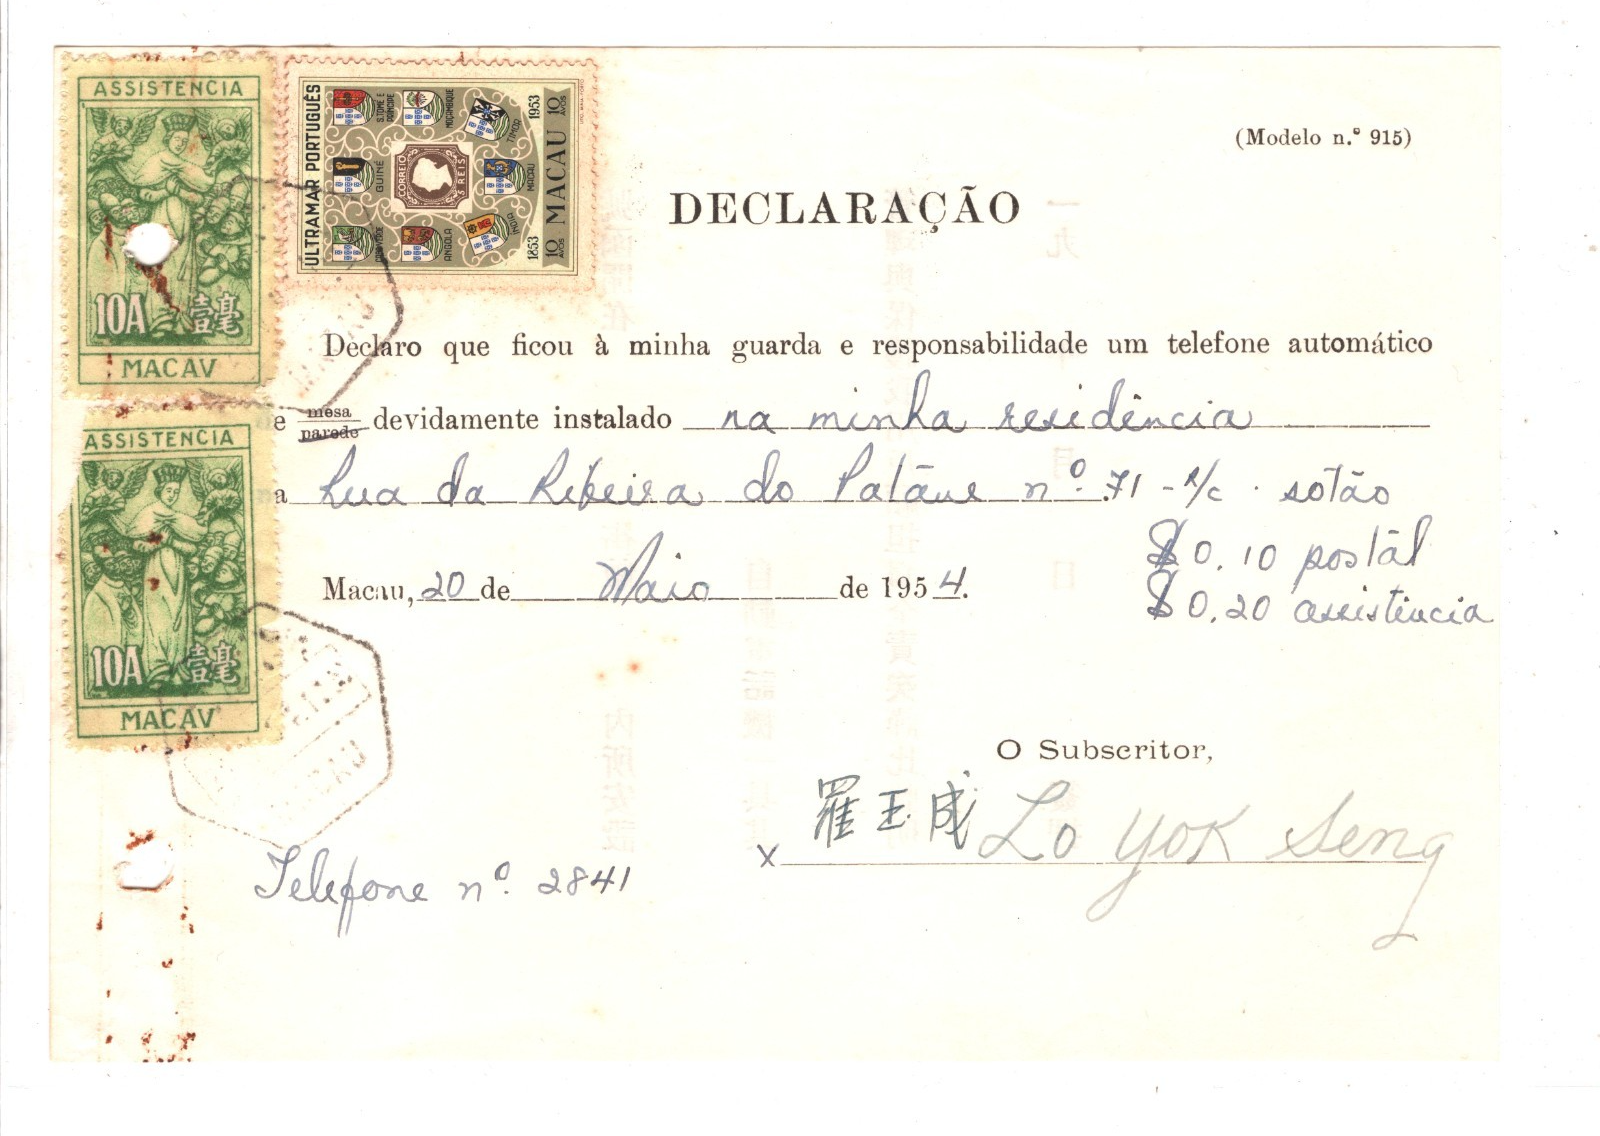 ASSISTENCIA
10A 壹毫
MACAV
ASSISTENCIA
10A 壹毫
MACAV
ULTRAMAR PORTUGUÊS
S. TOMÉ E PRINCIPE
MOÇAMBIQUE
TIMOR
GUINÉ
CORREIO
5 REIS
MACAU
ANGOLA
INDIA
1853 1953
10 AVOS MACAU 10 AVOS
(Modelo n.º 915)
DECLARAÇÃO
Declaro que ficou à minha guarda e responsabilidade um telefone automático
e mesa/parede devidamente instalado na minha residência
a Rua da Ribeira do Patâne nº. 71 - R/c . sotão
$0.10 postál
Macau, 20 de Maio de 1954.
$0.20 assistência
O Subscritor,
x 羅玉成 Lo Yok Seng
Telefone nº. 2841
MACAU